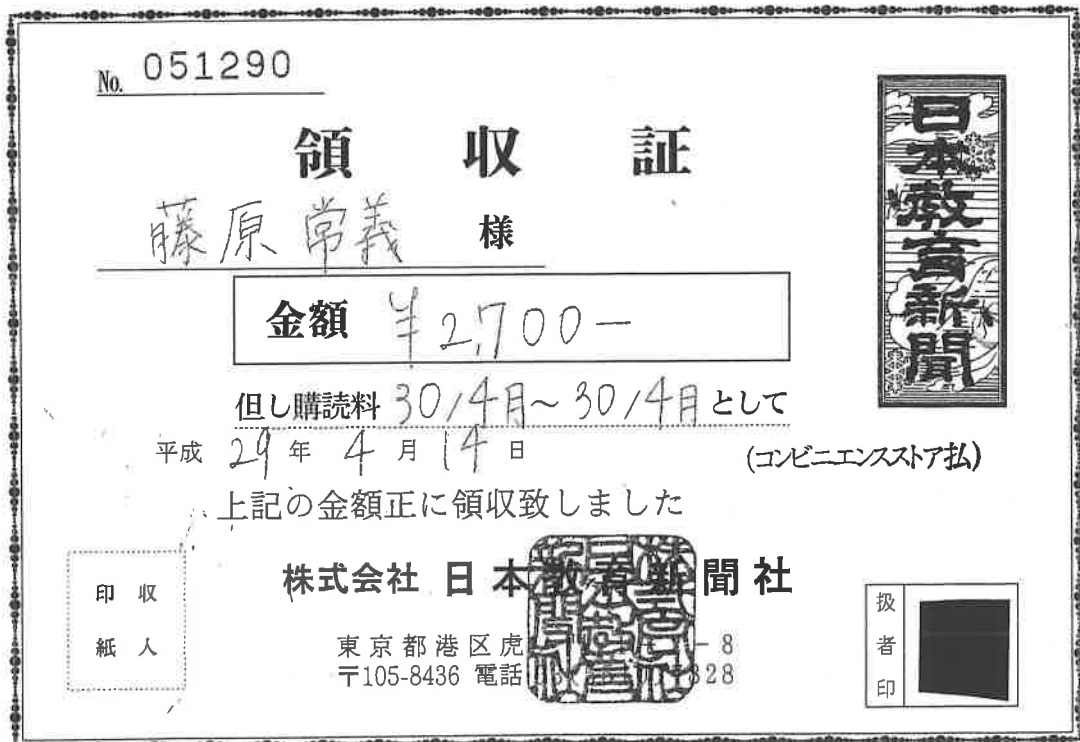 No. 051290
領収証
藤原常義 様
金額 ¥2,700-
但し購読料 30/4月～30/4月として
平成 29年 4月 14日
(コンビニエンスストア払)
上記の金額正に領収致しました
株式会社 日本教育新聞社
東京都港区虎 -8
〒105-8436 電話 328
日本教育新聞
印収
紙人
扱者印